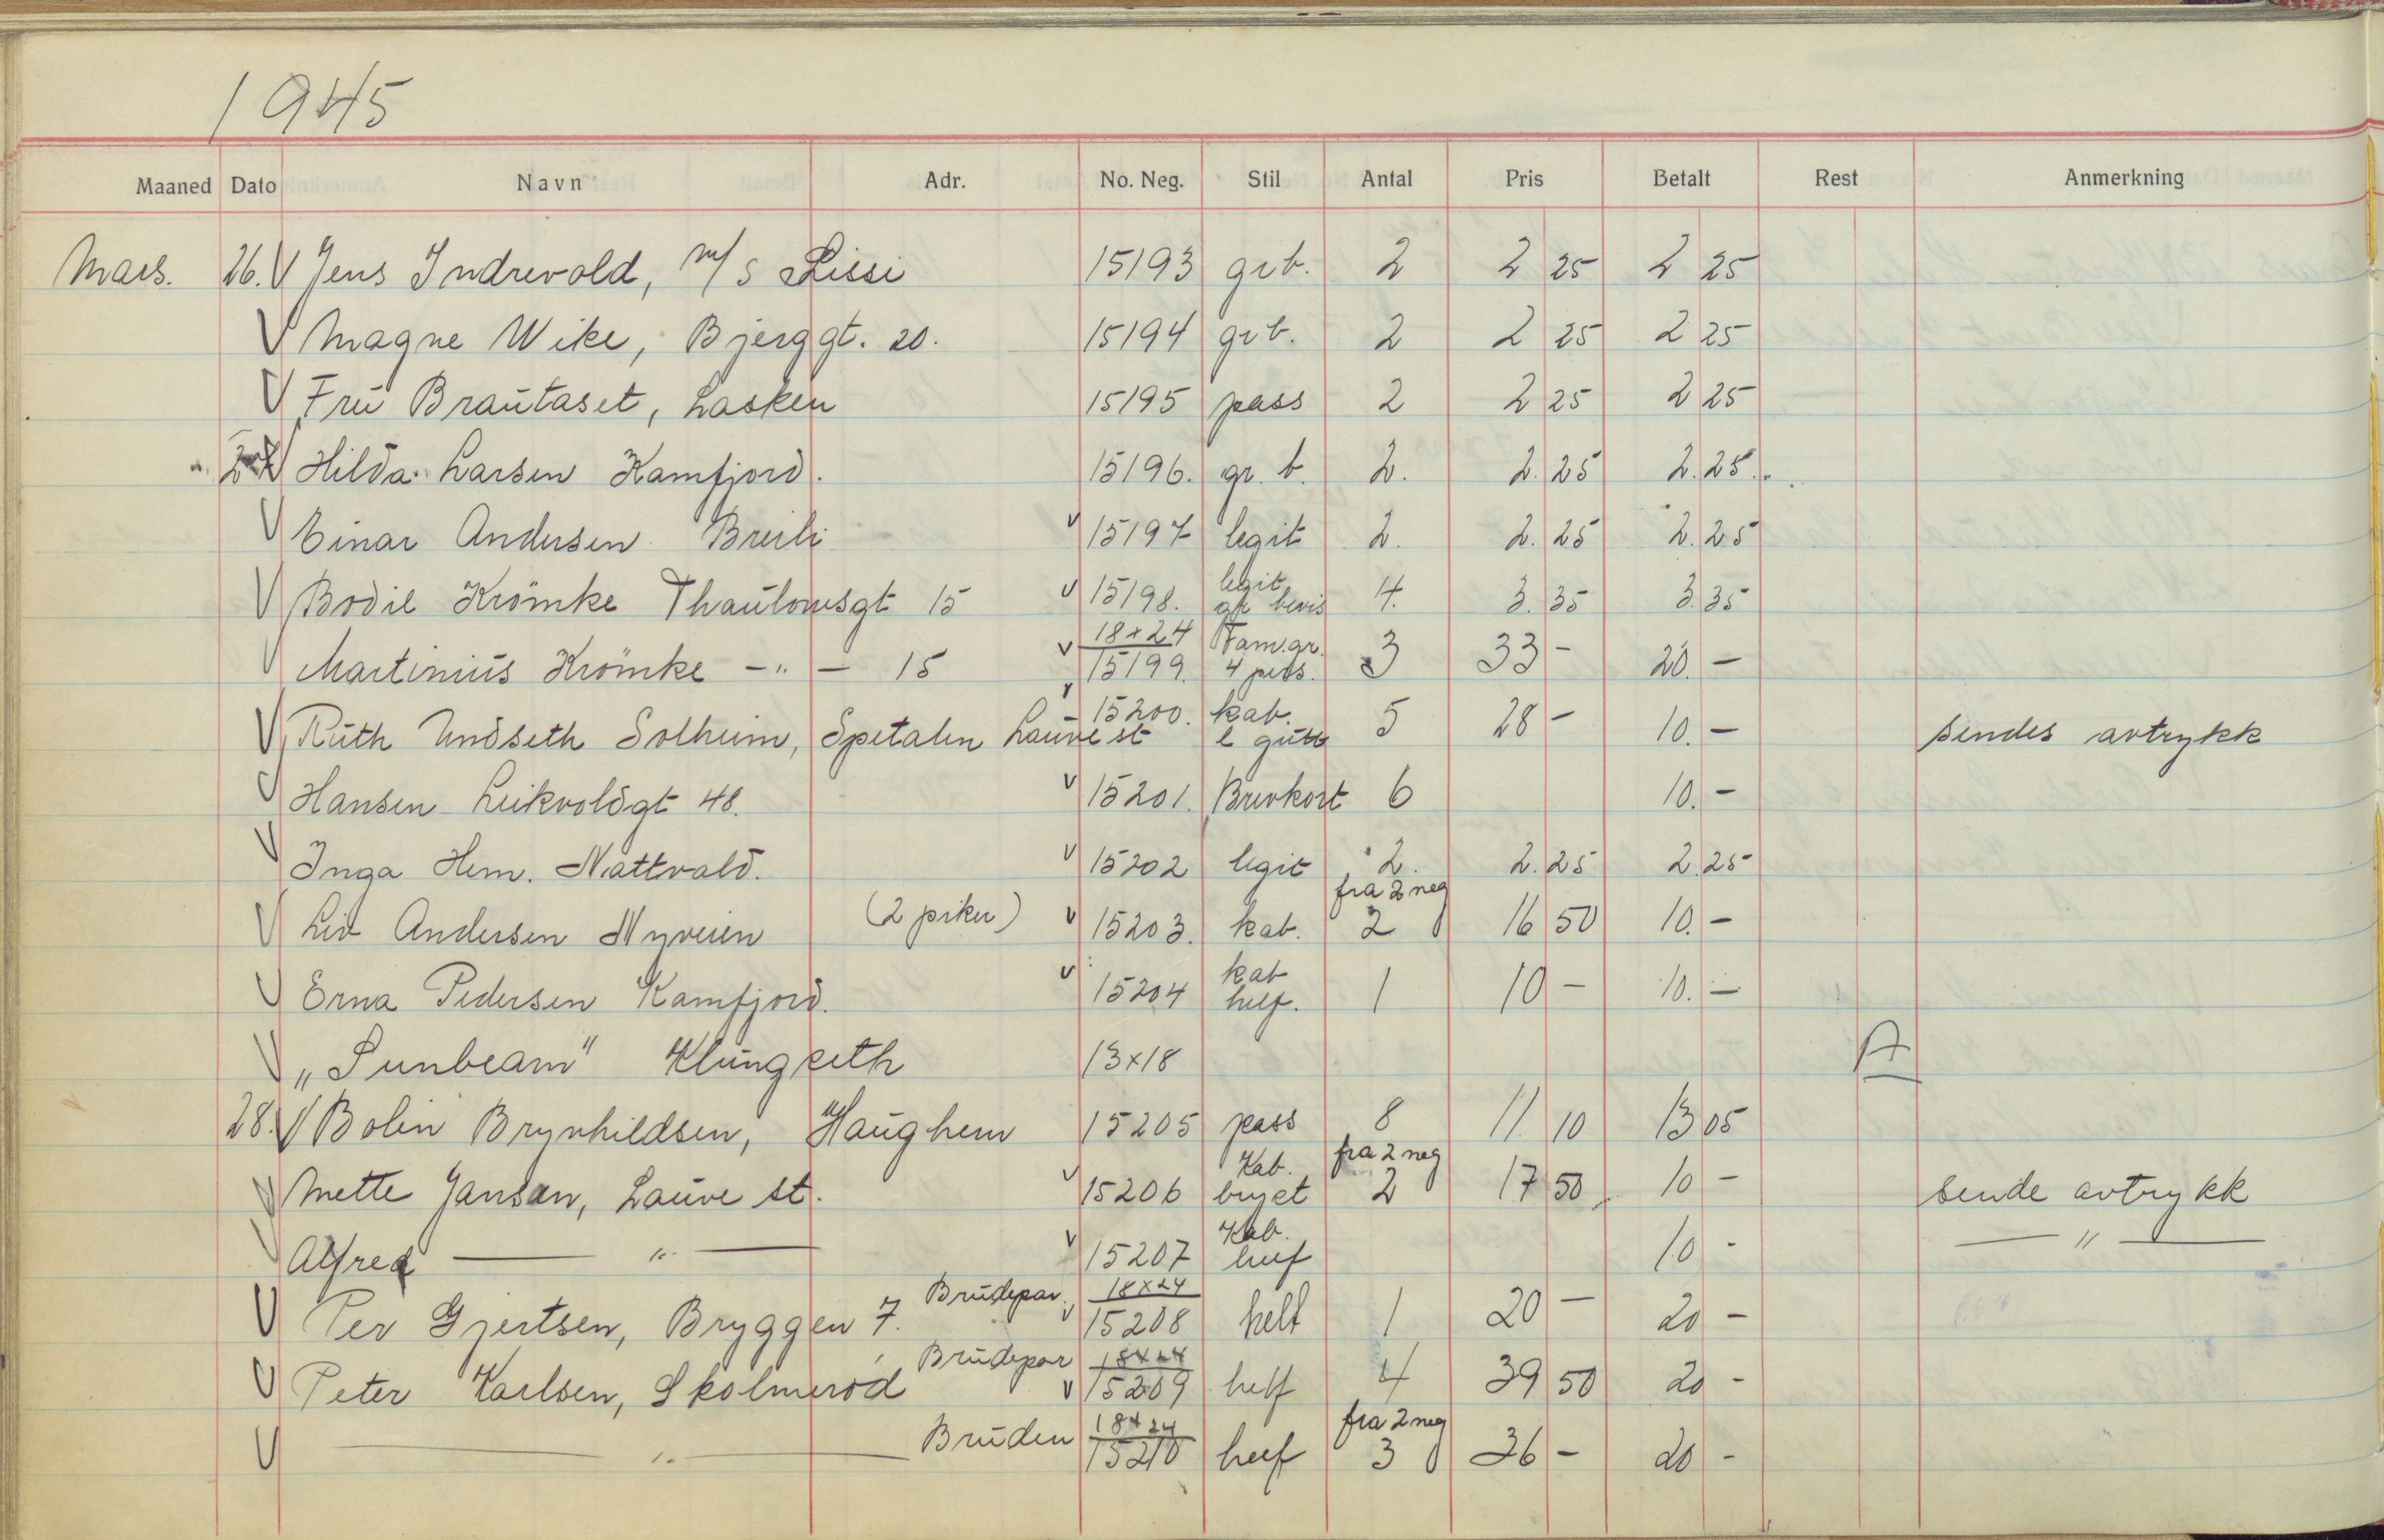 1945
Maaned Dato Navn Adr. No. Neg. Stil Antal Pris Betalt Rest Anmerkning
Mars. 26. V Jens Indrevold, m/s Lissi 15193 grb. 2 2 25 2 25
V Magne Wike, Bjerggt. 20. 15194 grb. 2 2 25 2 25
V Frü Braütaset, Lasken 15195 pass 2 2 25 2 25
V Hilda Larsen Kamfjord. 15196. gr. b. 2. 2. 25 2. 25
V Einar Andersen Breili V 15197 legit 2. 2. 25 2. 25
V Bodil Krömke Thaülowsgt 15 V 15198. legit gr bevis 4. 3. 35 3. 35
V Martiniüs Krömke -"- 15 V 18x24 15199. Fam.gr. 4 pers. 3 33 - 20. -
V Rüth Undseth Solheim, Spetalen Laüve st 15200. kab. l gütt 5 28 - 10. - sendes avtrykk
V Hansen Leikvoldgt 48. V 15201. Brevkort 6 10. -
V Inga Hem. Nattvald. V 15202 legit 2. 2. 25 2. 25
V Liv Andersen Nyveien (2 piker) V 15203. kab. fra 2 neg 2 16 50 10. -
V Erna Pedersen Kamfjord. V 15204 kab helf. 1 10 - 10. -
V „Sunbeam" Klüngseth 13x18 A
28. V Bolin Brynhildsen, Haüghem 15205 pass 8 11 10 13 05
V Mette Jansen, Laüve st. V 15206 Kab. bryst fra 2 neg 2 17 50 10 - sende avtrykk
V Alfred — " — V 15207 Kab. helf 10 - — " —
V Per Gjertsen, Bryggen 7. Brüdepar. V 18x24 15208 helf 1 20 - 20 -
V Peter Karlsen, Skolmerød Brüdepar V 18x24 15209 helf 4 39 50 20 -
V — " — Brüden 18x24 15210 helf fra 2 neg 3 36 - 20 -